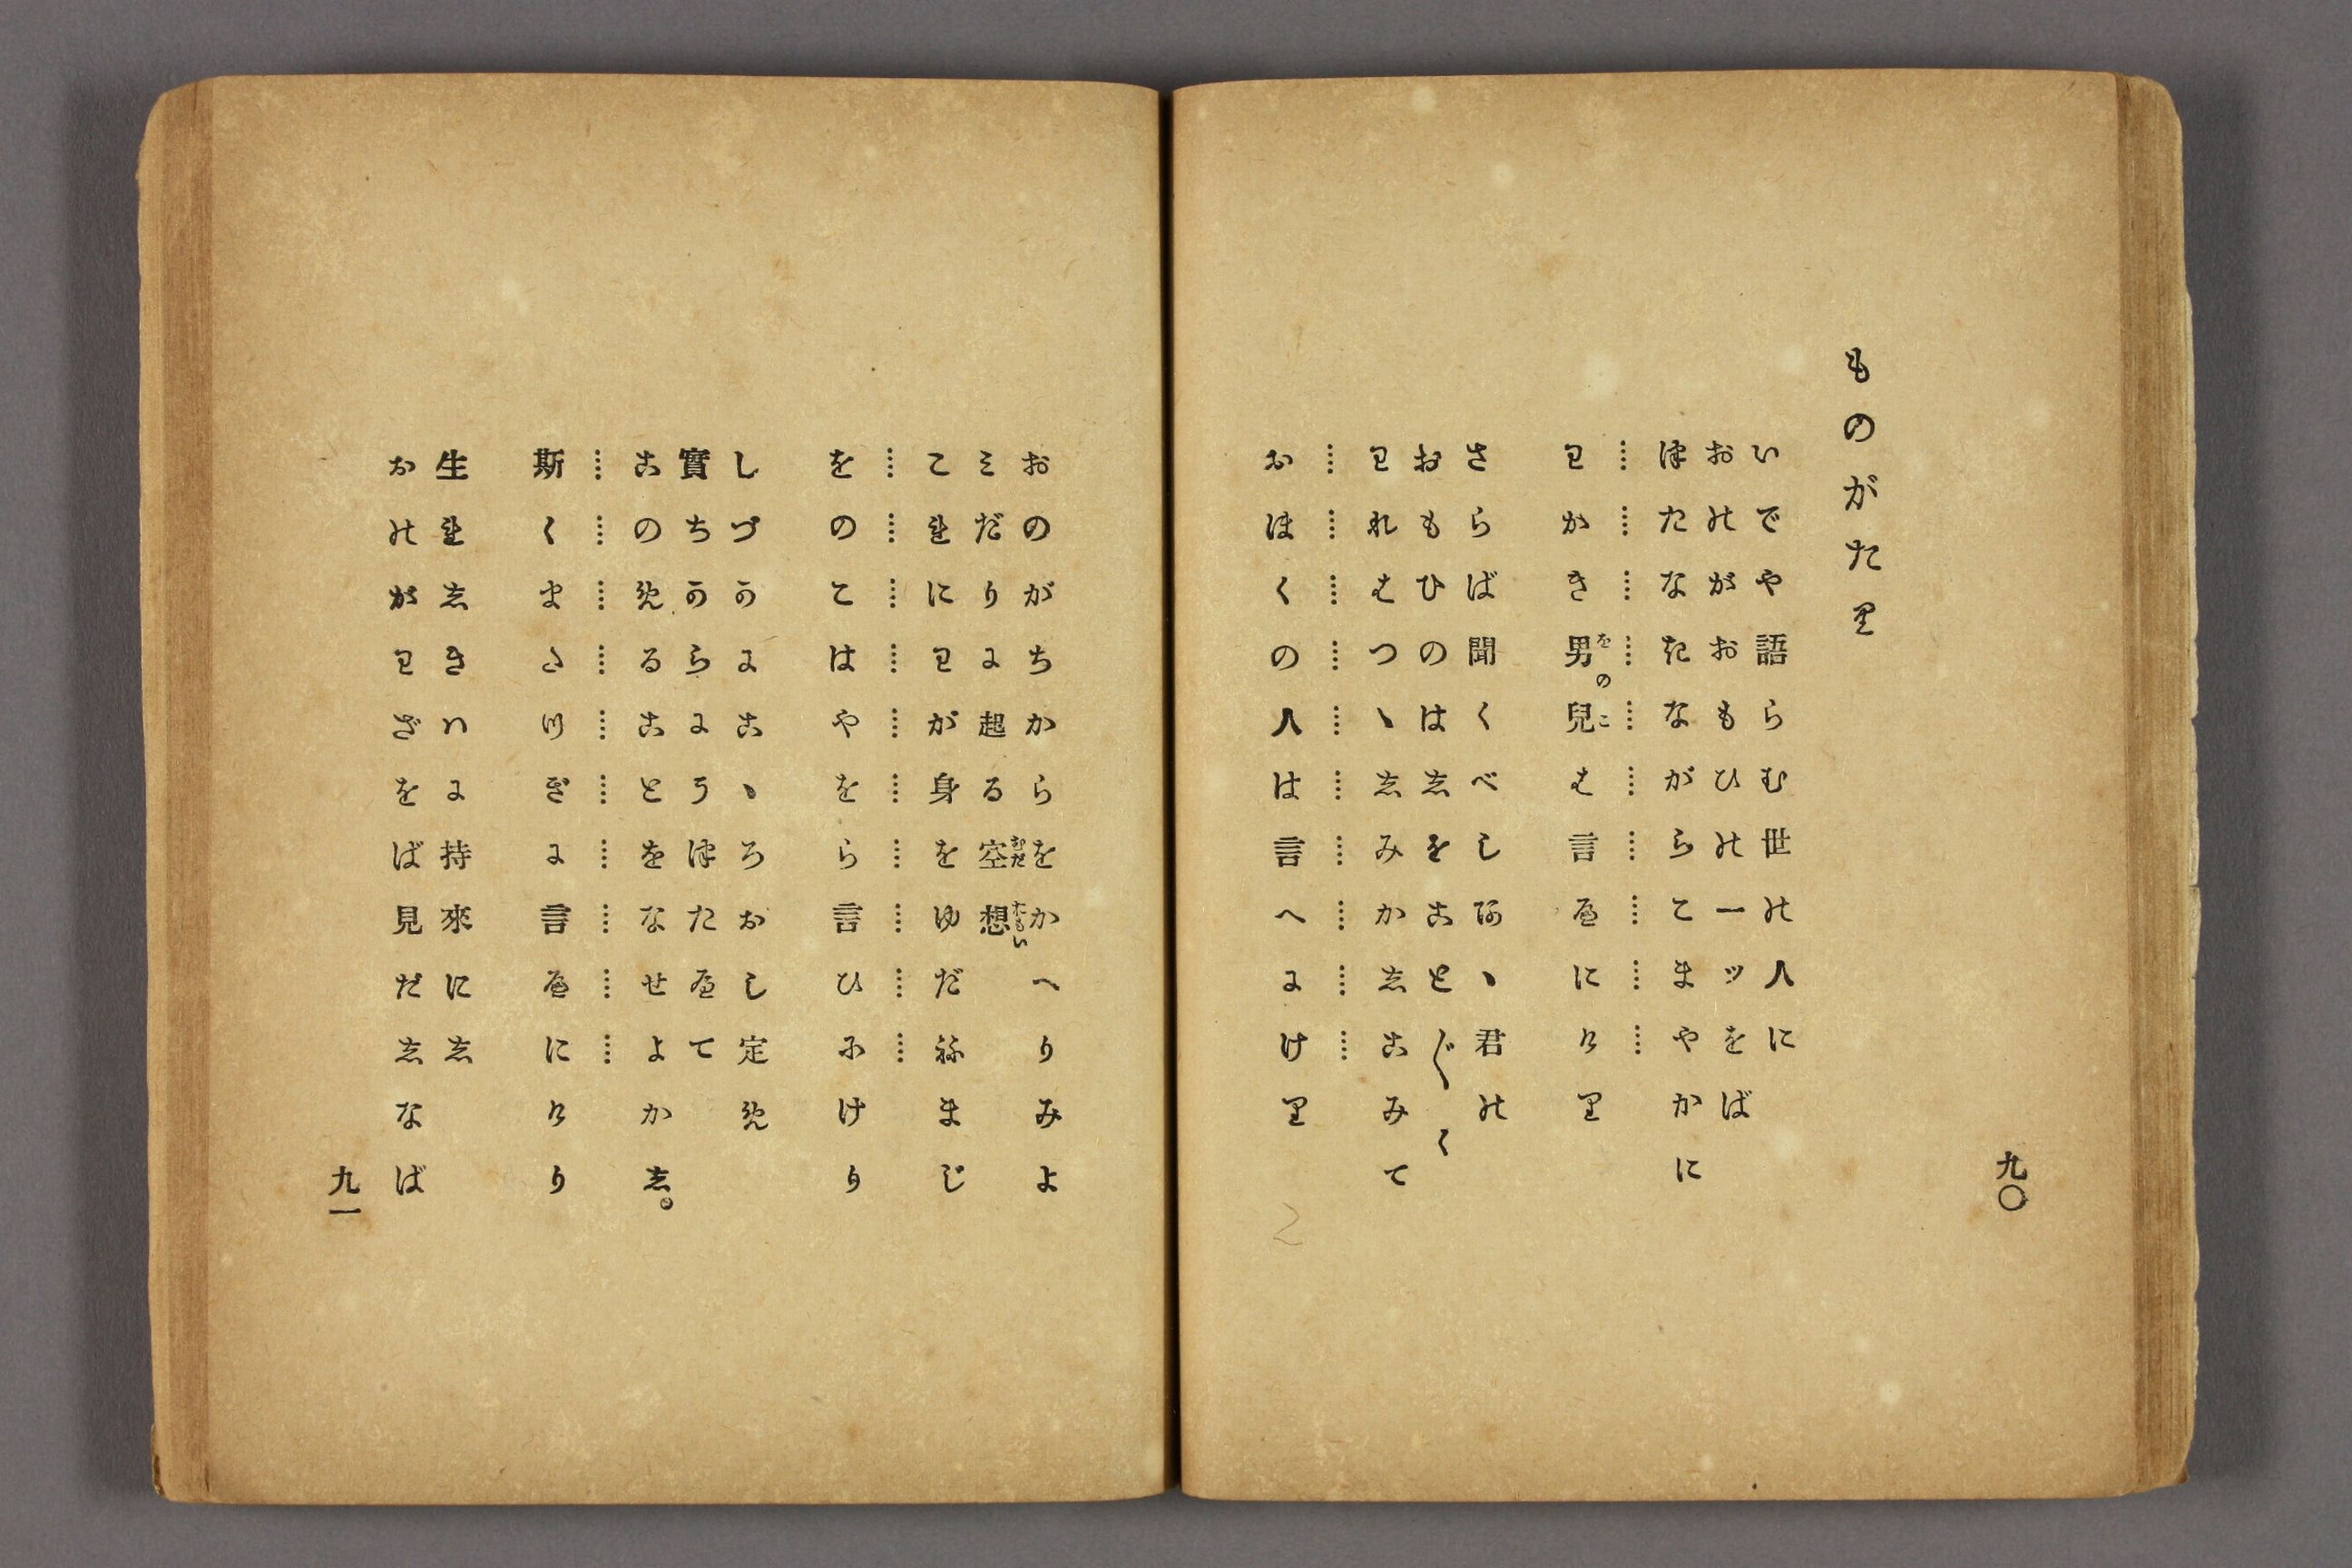 九〇
ものがたり
いでや語らむ世の人に
おのがおもひの一ッをば
つたなきながらこまやかに
…………………………
わかき男兒は言へにけり
をのこ
さらば聞くべしあゝ君の
おもひのはしをこと〴〵く
われはつゝしみかしこみて
…………………………
おほくの人は言へにけり
おのがちからをかへりみよ
みだりに起る空想
むだおもい
これにわが身をゆだねまじ
…………………………
をのこはやをら言ひにけり
しづかにこゝろおし定め
實ちからにうつたへて
このめることをなせよかし。
…………………………
斯くまたつぎに言へにけり
生れしきはに持來にし
おのがわざをば見だしなば
九一